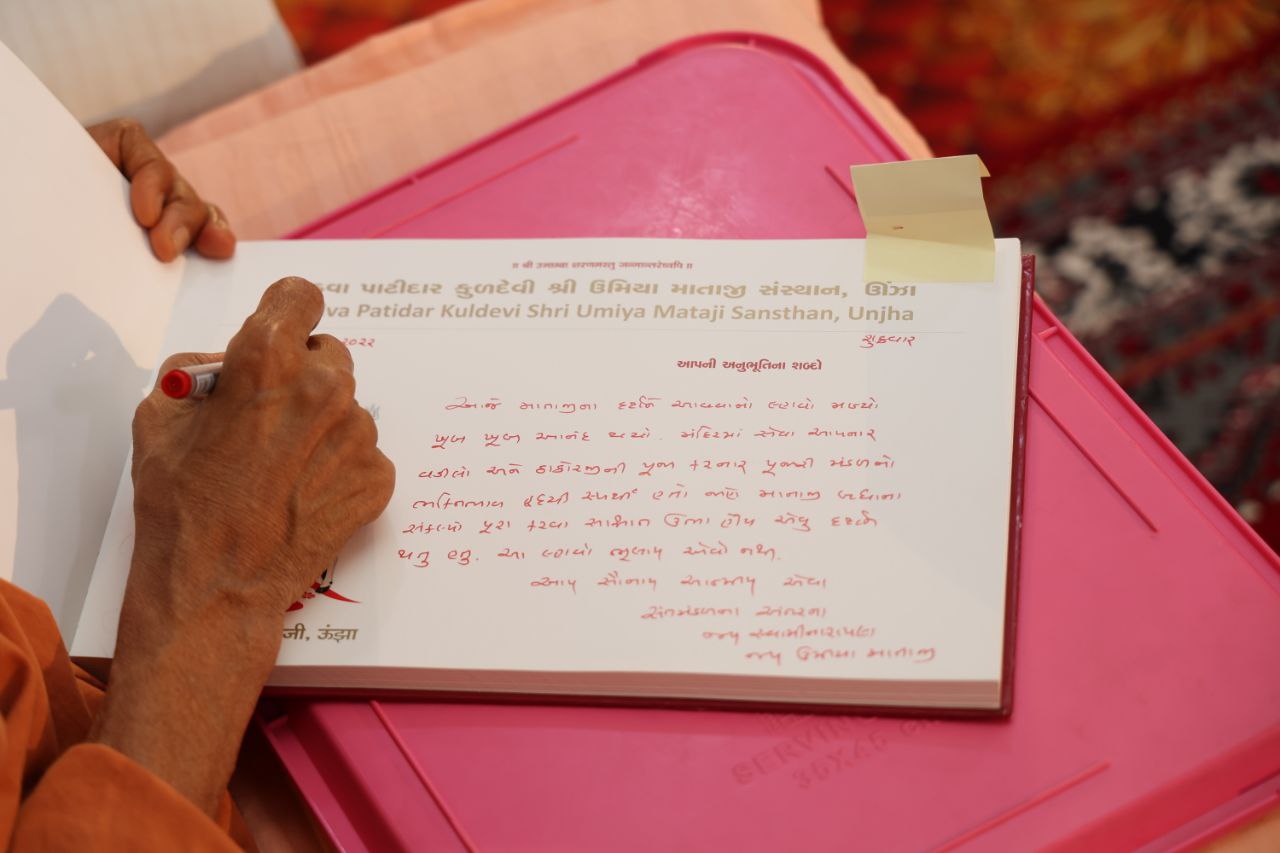 ॥ श्री उमाम्बा शरणमस्तु जन्मान्तरेष्वपि ॥
ડવા પાટીદાર કુળદેવી શ્રી ઉમિયા માતાજી સંસ્થાન, ઊંઝા
va Patidar Kuldevi Shri Umiya Mataji Sansthan, Unjha
૨૦૨૨ શુક્રવાર
આપની અનુભૂતિના શબ્દો
આજે માતાજીના દર્શને આવવાનો લ્હાવો મળ્યો
ખૂબ ખૂબ આનંદ થયો. મંદિરમાં સેવા આપનાર
વડીલો અને ઠાકોરજીની પૂજા કરનાર પૂજારી મંડળનો
ભક્તિભાવ હૃદયસ્પર્શી હતો જાણે માતાજી બધાના
સંકલ્પો પૂરા કરવા સાક્ષાત ઉભા હોય એવું દર્શન
થતુ હતુ. આ લ્હાવો ભૂલાય એવો નથી.
આપ સૌનાય આત્મીય એવા
સંતમંડળના અંતરના
જય સ્વામીનારાયણ
જય ઉમિયા માતાજી
जी, ऊंझा
SERVIN
35X45 C